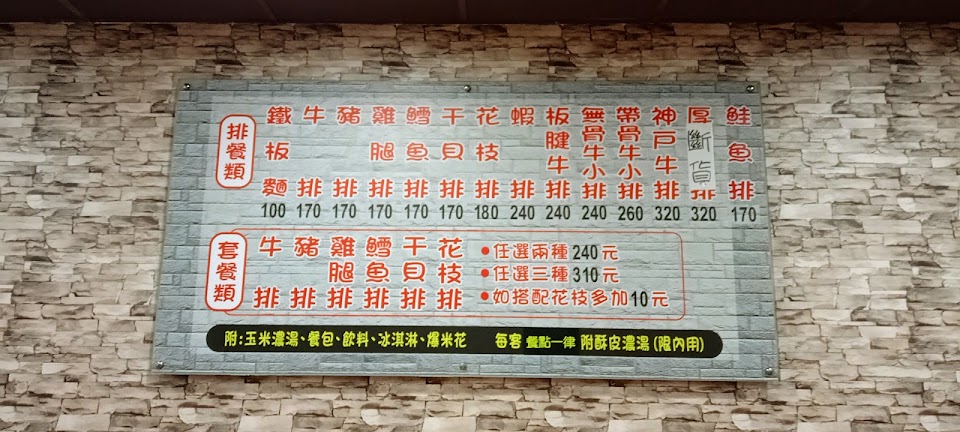 排餐類
鐵板麵 100
牛排 170
豬排 170
雞腿排 170
鱈魚排 170
干貝排 170
花枝排 180
蝦排 240
板腱牛排 240
無骨牛小排 240
帶骨牛小排 260
神戶牛排 320
厚斷貨排 320
鮭魚排 170
套餐類
牛排
豬排
雞腿排
鱈魚排
干貝排
花枝排
•任選兩種240元
•任選三種310元
•如搭配花枝多加10元
附:玉米濃湯、餐包、飲料、冰淇淋、爆米花 每客 餐點一律 附酥皮濃湯(限內用)